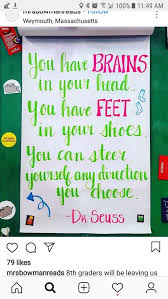 11:49 AM
mrsbowmanreads · Follow
Weymouth, Massachusetts
You have BRAINS
in your head.
You have FEET
in your shoes.
You can steer
yourself any direction
you choose.
-DR. SEUSS
79 likes
mrsbowmanreads 8th graders will be leaving us